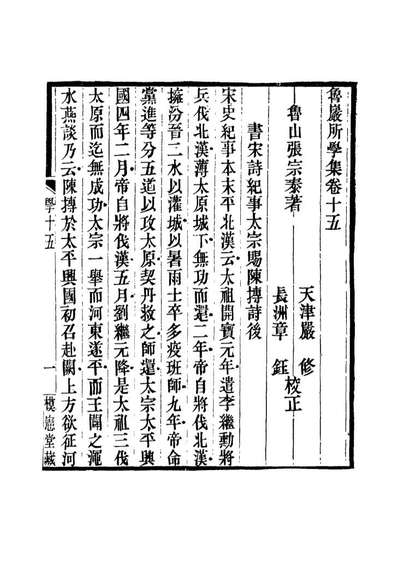 魯巖所學集卷十五
魯山張宗泰著
天津嚴　修
長洲章　鈺
校正
書宋詩紀事太宗賜陳摶詩後
宋史紀事本末平北漢云太祖開寶元年遣李繼勳將
兵伐北漢薄太原城下無功而還二年帝自將伐北漢
擁汾晉二水以灌城以暑雨士卒多疫班師九年帝命
黨進等分五道以攻太原契丹救之師還太宗太平興
國四年二月帝自將伐漢五月劉繼元降是太祖三伐
太原而迄無成功太宗一舉而河東遂平而王闢之澠
水燕談乃云陳摶於太平興國初召赴闕上方欲征河
學十五
一
模憲堂藏